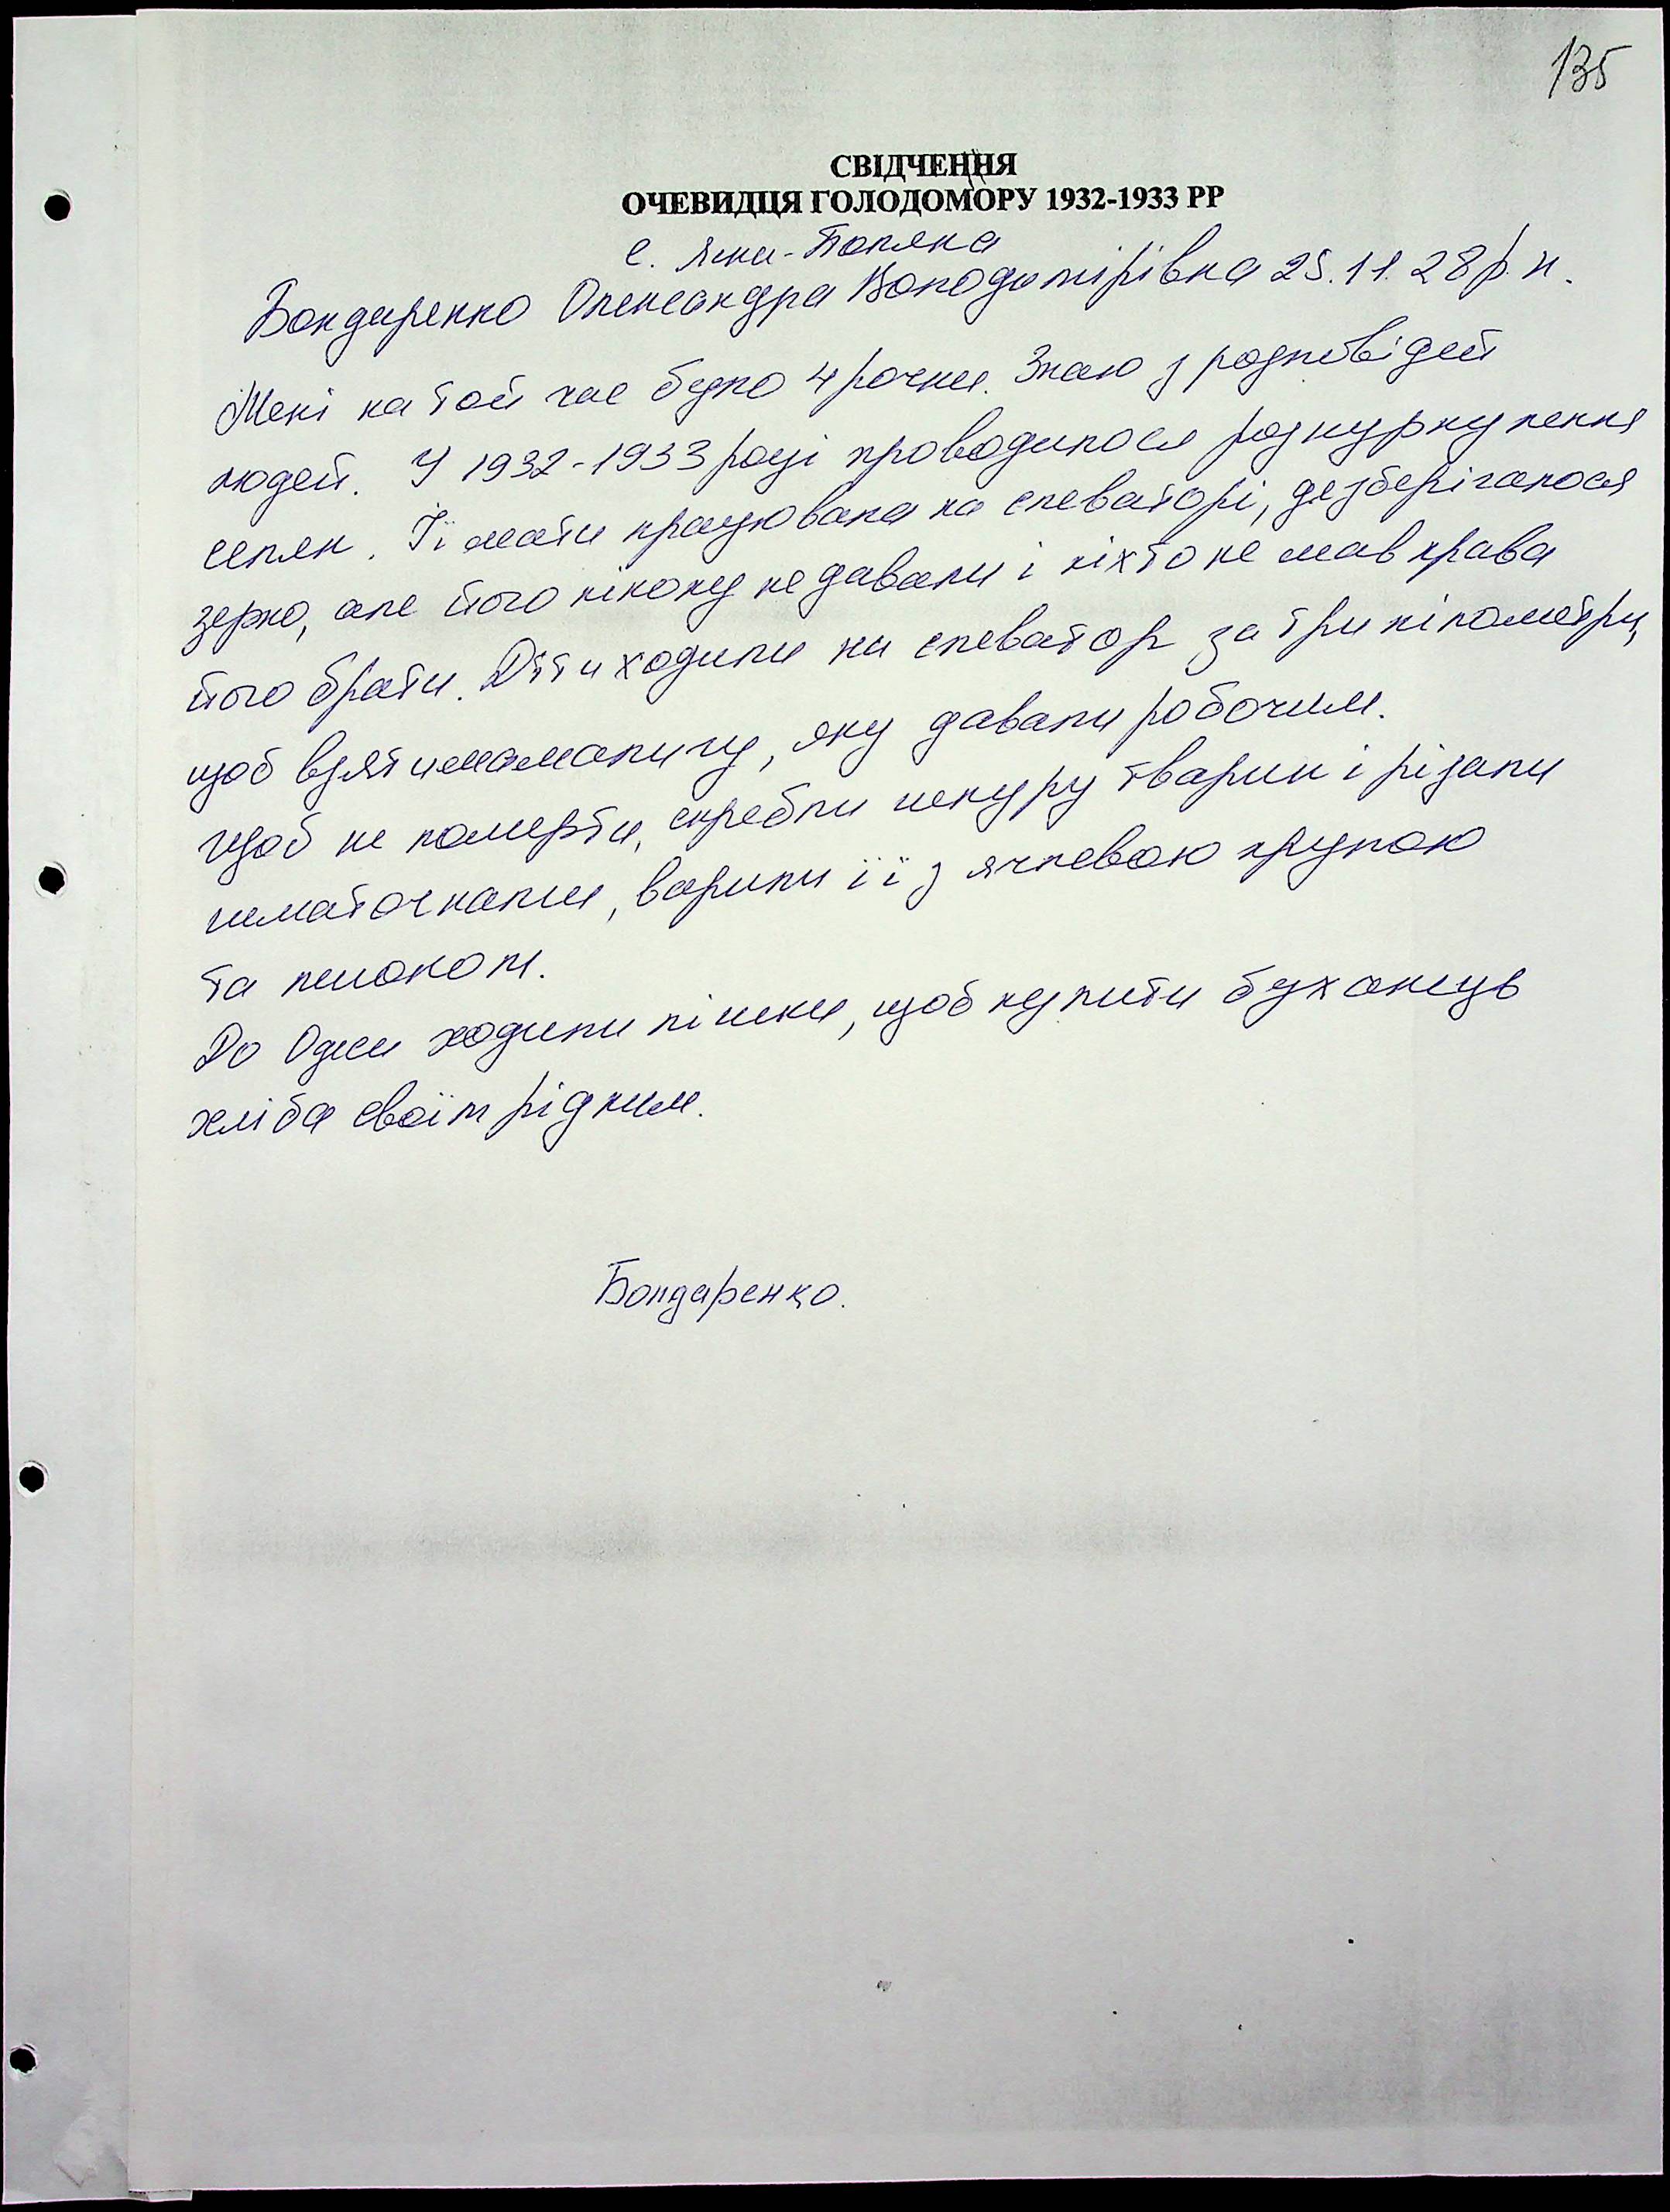 135
СВІДЧЕННЯ
ОЧЕВИДЦЯ ГОЛОДОМОРУ 1932-1933 РР
с. Яски-Поляна
Бондаренко Олександра Володимірівна 25.11.28 р.н.
Мені на той час було 4 рочки. Знаю з розповідей
людей. У 1932-1933 році проводилося розкуркулення
селян. Її мати працювала на елеваторі, де зберігалося
зерно, але його нікому не давали і ніхто не мав права
його брати. Діти ходили на елеватор за три кілометри,
щоб взяти мамалигу, яку давали робочим.
Щоб не померти, скребли шкуру тварин і різали
шматочками, варили її з ячневою крупою
та молоком.
До Одеси ходили пішки, щоб купити буханець
хліба своїм рідним.
Бондаренко.